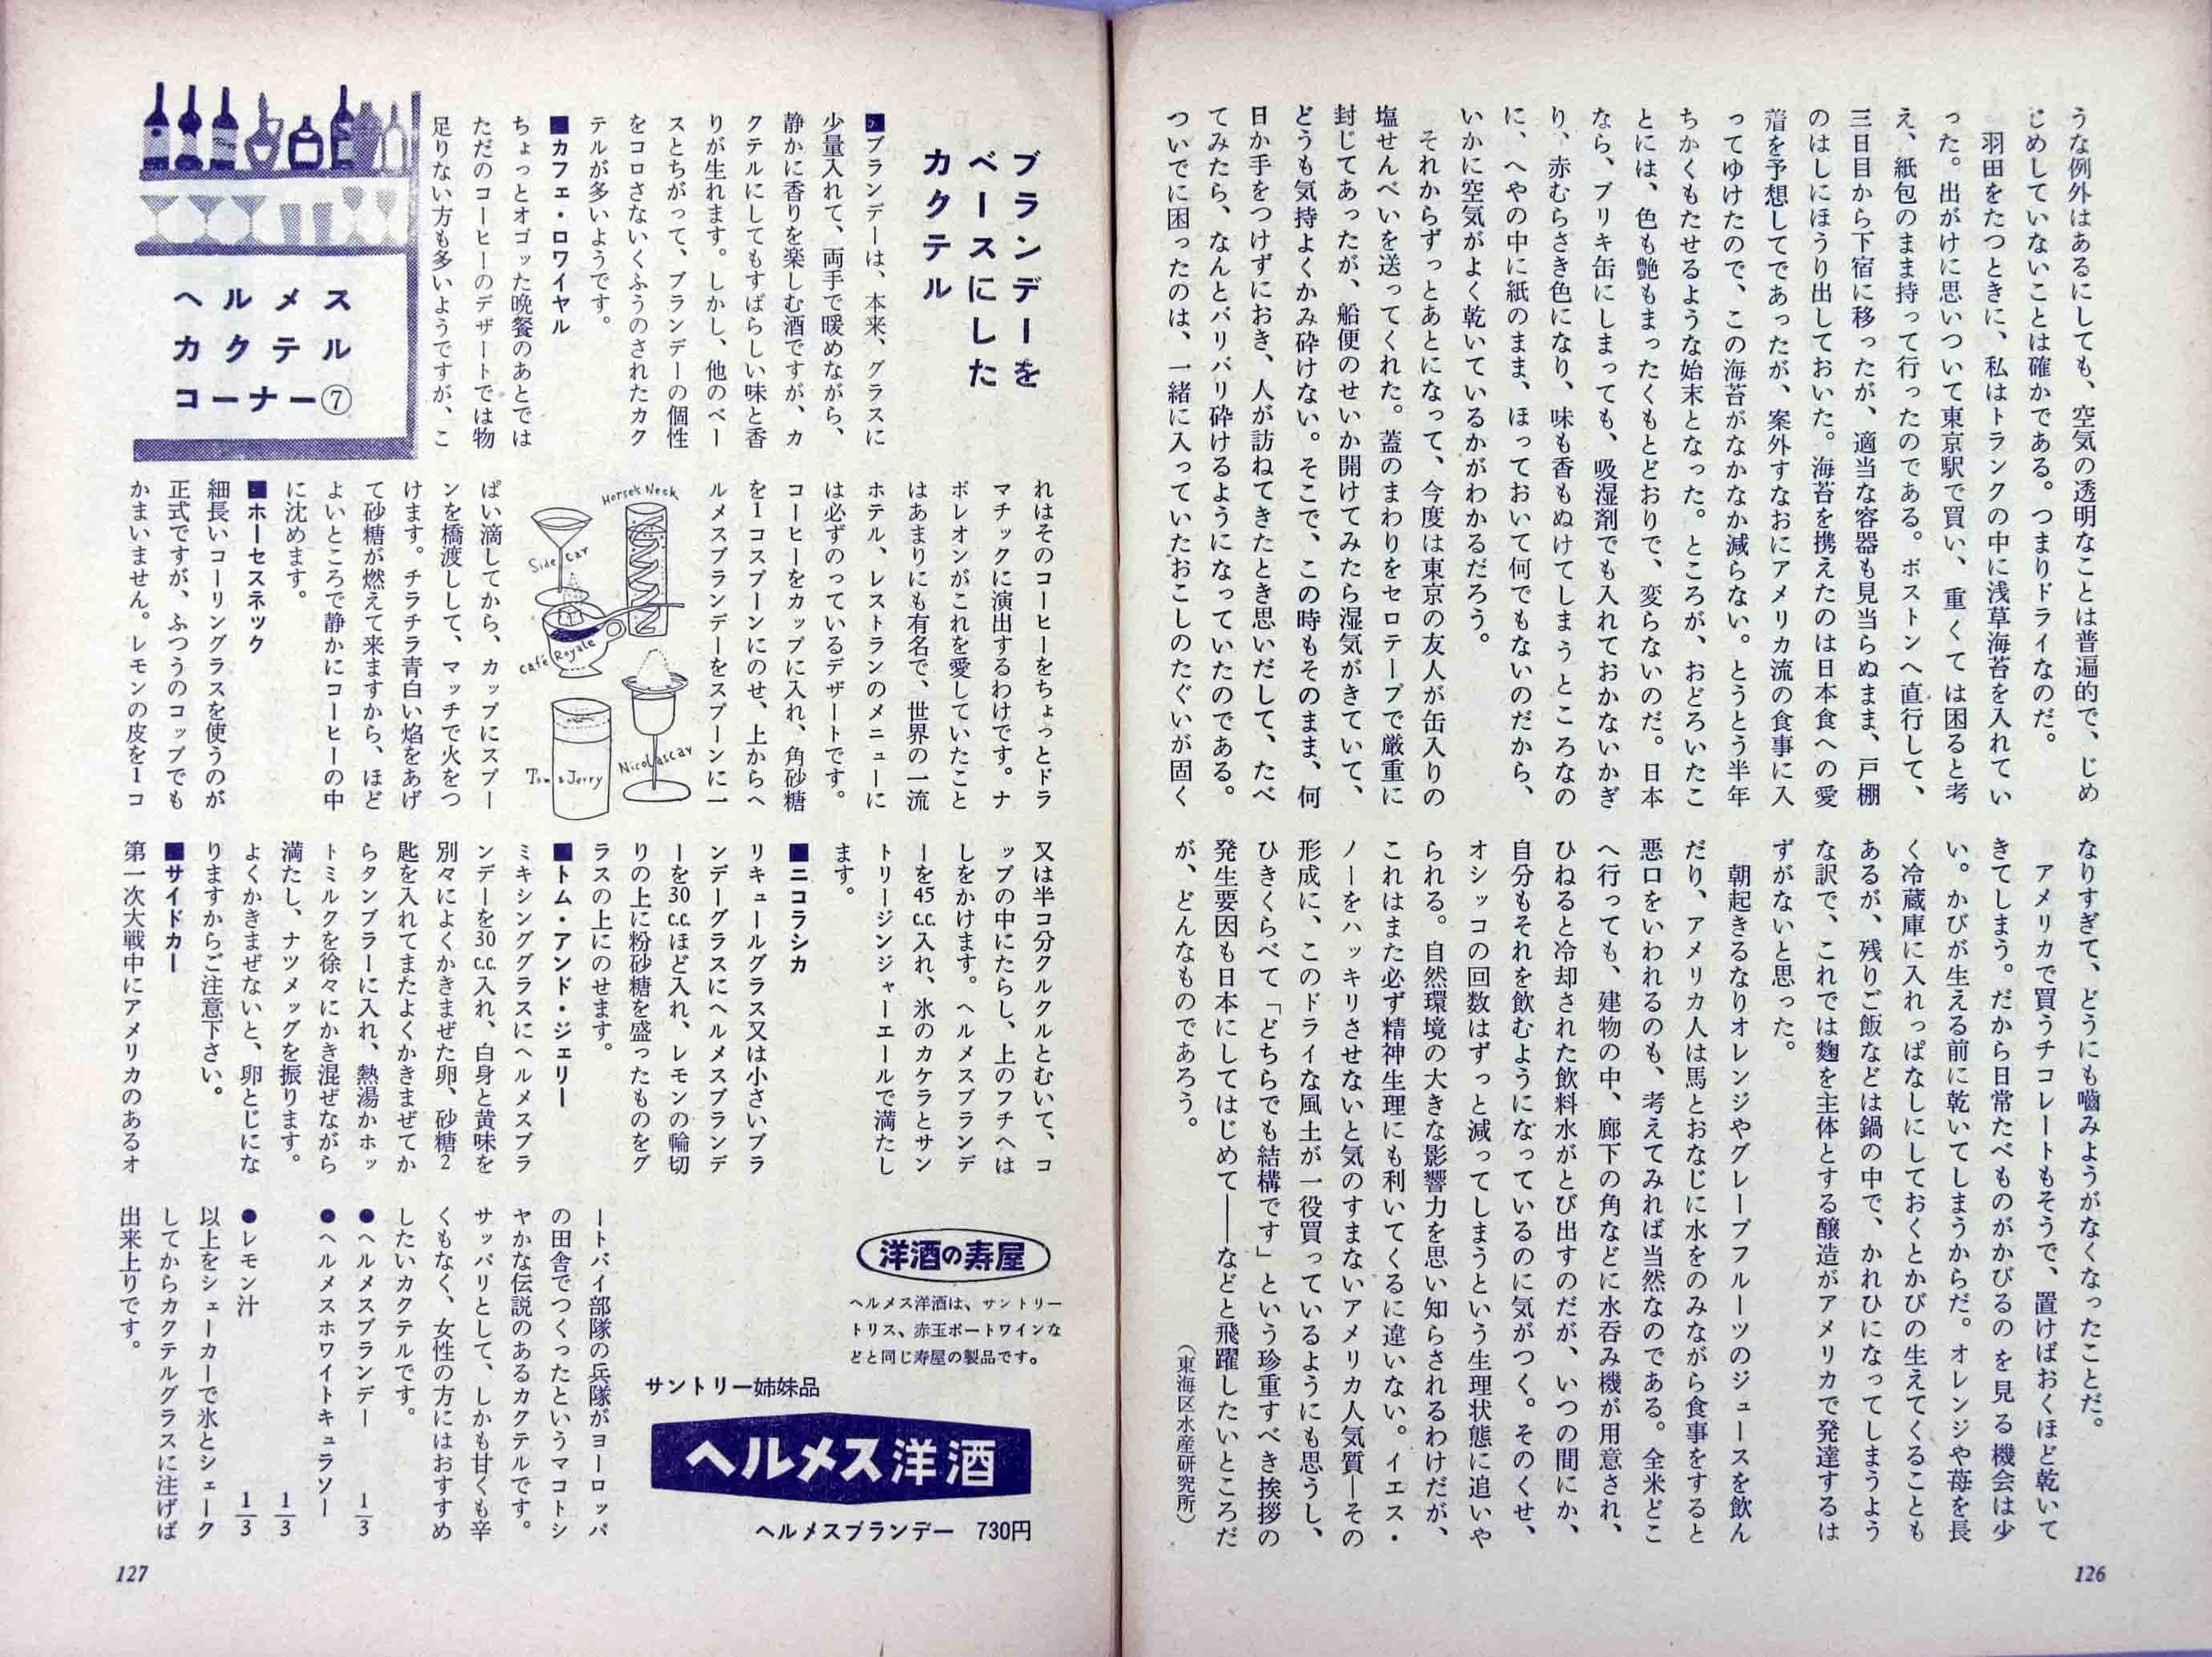 うな例外はあるにしても、空気の透明なことは普遍的で、じめ
じめしていないことは確かである。つまりドライなのだ。
羽田をたつときに、私はトランクの中に浅草海苔を入れてい
った。出がけに思いついて東京駅で買い、重くては困ると考
え、紙包のまま持って行ったのである。ボストンへ直行して、
三日目から下宿に移ったが、適当な容器も見当らぬまま、戸棚
のはしにほうり出しておいた。海苔を携えたのは日本食への愛
着を予想してであったが、案外すなおにアメリカ流の食事に入
ってゆけたので、この海苔がなかなか減らない。とうとう半年
ちかくもたせるような始末となった。ところが、おどろいたこ
とには、色も艶もまったくもとどおりで、変らないのだ。日本
なら、ブリキ缶にしまっても、吸湿剤でも入れておかないかぎ
り、赤むらさき色になり、味も香もぬけてしまうところなの
に、へやの中に紙のまま、ほっておいて何でもないのだから、
いかに空気がよく乾いているかがわかるだろう。
それからずっとあとになって、今度は東京の友人が缶入りの
塩せんべいを送ってくれた。蓋のまわりをセロテープで厳重に
封じてあったが、船便のせいか開けてみたら湿気がきていて、
どうも気持よくかみ砕けない。そこで、この時もそのまま、何
日か手をつけずにおき、人が訪ねてきたとき思いだして、たべ
てみたら、なんとバリバリ砕けるようになっていたのである。
ついでに困ったのは、一緒に入っていたおこしのたぐいが固く
なりすぎて、どうにも嚙みようがなくなったことだ。
アメリカで買うチコレートもそうで、置けばおくほど乾いて
きてしまう。だから日常たべものがかびるのを見る機会は少
い。かびが生える前に乾いてしまうからだ。オレンジや苺を長
く冷蔵庫に入れっぱなしにしておくとかびの生えてくることも
あるが、残りご飯などは鍋の中で、かれひになってしまうよう
な訳で、これでは麴を主体とする醸造がアメリカで発達するは
ずがないと思った。
朝起きるなりオレンジやグレープフルーツのジュースを飲ん
だり、アメリカ人は馬とおなじに水をのみながら食事をすると
悪口をいわれるのも、考えてみれば当然なのである。全米どこ
へ行っても、建物の中、廊下の角などに水呑み機が用意され、
ひねると冷却された飲料水がとび出すのだが、いつの間にか、
自分もそれを飲むようになっているのに気がつく。そのくせ、
オシッコの回数はずっと減ってしまうという生理状態に追いや
られる。自然環境の大きな影響力を思い知らされるわけだが、
これはまた必ず精神生理にも利いてくるに違いない。イエス・
ノーをハッキリさせないと気のすまないアメリカ人気質―その
形成に、このドライな風土が一役買っているようにも思うし、
ひきくらべて「どちらでも結構です」という珍重すべき挨拶の
発生要因も日本にしてはじめて――などと飛躍したいところだ
が、どんなものであろう。
（東海区水産研究所）
126
ブランデーを
ベースにした
カクテル
■ブランデーは、本来、グラスに
少量入れて、両手で暖めながら、
静かに香りを楽しむ酒ですが、カ
クテルにしてもすばらしい味と香
りが生れます。しかし、他のベー
スとちがって、ブランデーの個性
をコロさないくふうのされたカク
テルが多いようです。
■カフェ・ロワイヤル
ちょっとオゴッた晩餐のあとでは
ただのコーヒーのデザートでは物
足りない方も多いようですが、こ
ヘルメス
カクテル
コーナー⑦
れはそのコーヒーをちょっとドラ
マチックに演出するわけです。ナ
ポレオンがこれを愛していたこと
はあまりにも有名で、世界の一流
ホテル、レストランのメニューに
は必ずのっているデザートです。
コーヒーをカップに入れ、角砂糖
を1コスプーンにのせ、上からヘ
ルメスブランデーをスプーンに一
Horse's Neck
Side Car
Café Royale
Nicolascar
Tom & Jerry
ぱい滴してから、カップにスプー
ンを橋渡しして、マッチで火をつ
けます。チラチラ青白い焰をあげ
て砂糖が燃えて来ますから、ほど
よいところで静かにコーヒーの中
に沈めます。
■ホーセスネック
細長いコーリングラスを使うのが
正式ですが、ふつうのコップでも
かまいません。レモンの皮を1コ
又は半コ分クルクルとむいて、コ
ップの中にたらし、上のフチへは
しをかけます。ヘルメスブランデ
ーを45c.c.入れ、氷のカケラとサン
トリージンジャーエールで満たし
ます。
■ニコラシカ
リキュールグラス又は小さいブラ
ンデーグラスにヘルメスブランデ
ーを30c.c.ほど入れ、レモンの輪切
りの上に粉砂糖を盛ったものをグ
ラスの上にのせます。
■トム・アンド・ジェリー
ミキシンググラスにヘルメスブラ
ンデーを30c.c.入れ、白身と黄味を
別々によくかきまぜた卵、砂糖2
匙を入れてまたよくかきまぜてか
らタンブラーに入れ、熱湯かホッ
トミルクを徐々にかき混ぜながら
満たし、ナツメッグを振ります。
よくかきまぜないと、卵とじにな
りますからご注意下さい。
■サイドカー
第一次大戦中にアメリカのあるオ
ートバイ部隊の兵隊がヨーロッパ
の田舎でつくったというマコトシ
ヤかな伝説のあるカクテルです。
サッパリとして、しかも甘くも辛
くもなく、女性の方にはおすすめ
したいカクテルです。
●ヘルメスブランデー 1/3
●ヘルメスホワイトキュラソー 1/3
●レモン汁 1/3
以上をシェーカーで氷とシェーク
してからカクテルグラスに注げば
出来上りです。
洋酒の寿屋
ヘルメス洋酒は、サントリー
トリス、赤玉ポートワインな
どと同じ寿屋の製品です。
サントリー姉妹品
ヘルメス洋酒
ヘルメスブランデー 730円
127